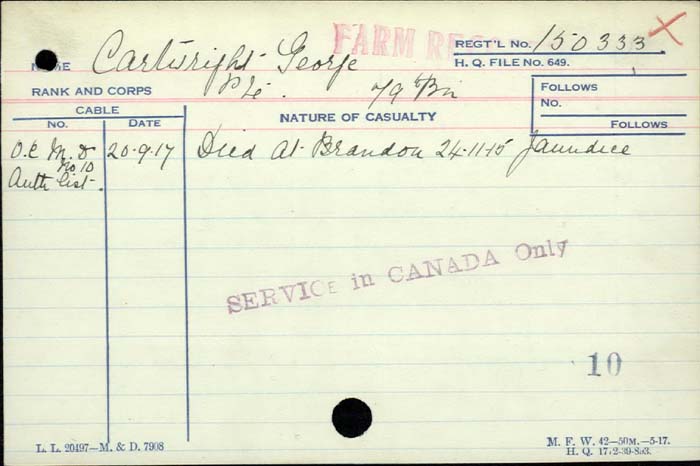 FARM REC
NAME Cartwright George REGT'L No. 150333
H. Q. FILE No. 649.
RANK AND CORPS Pte. 79 Bn
FOLLOWS
No.
FOLLOWS
CABLE
No. DATE
NATURE OF CASUALTY
O.C. M.D. 20-9-17 Died At Brandon 24-11-15 Jaundice
No 10
Auth list.
SERVICE in CANADA Only
10
L. L. 20497—M. & D. 7908
M. F. W. 42—50M.—5-17.
H. Q. 1772-39-893.